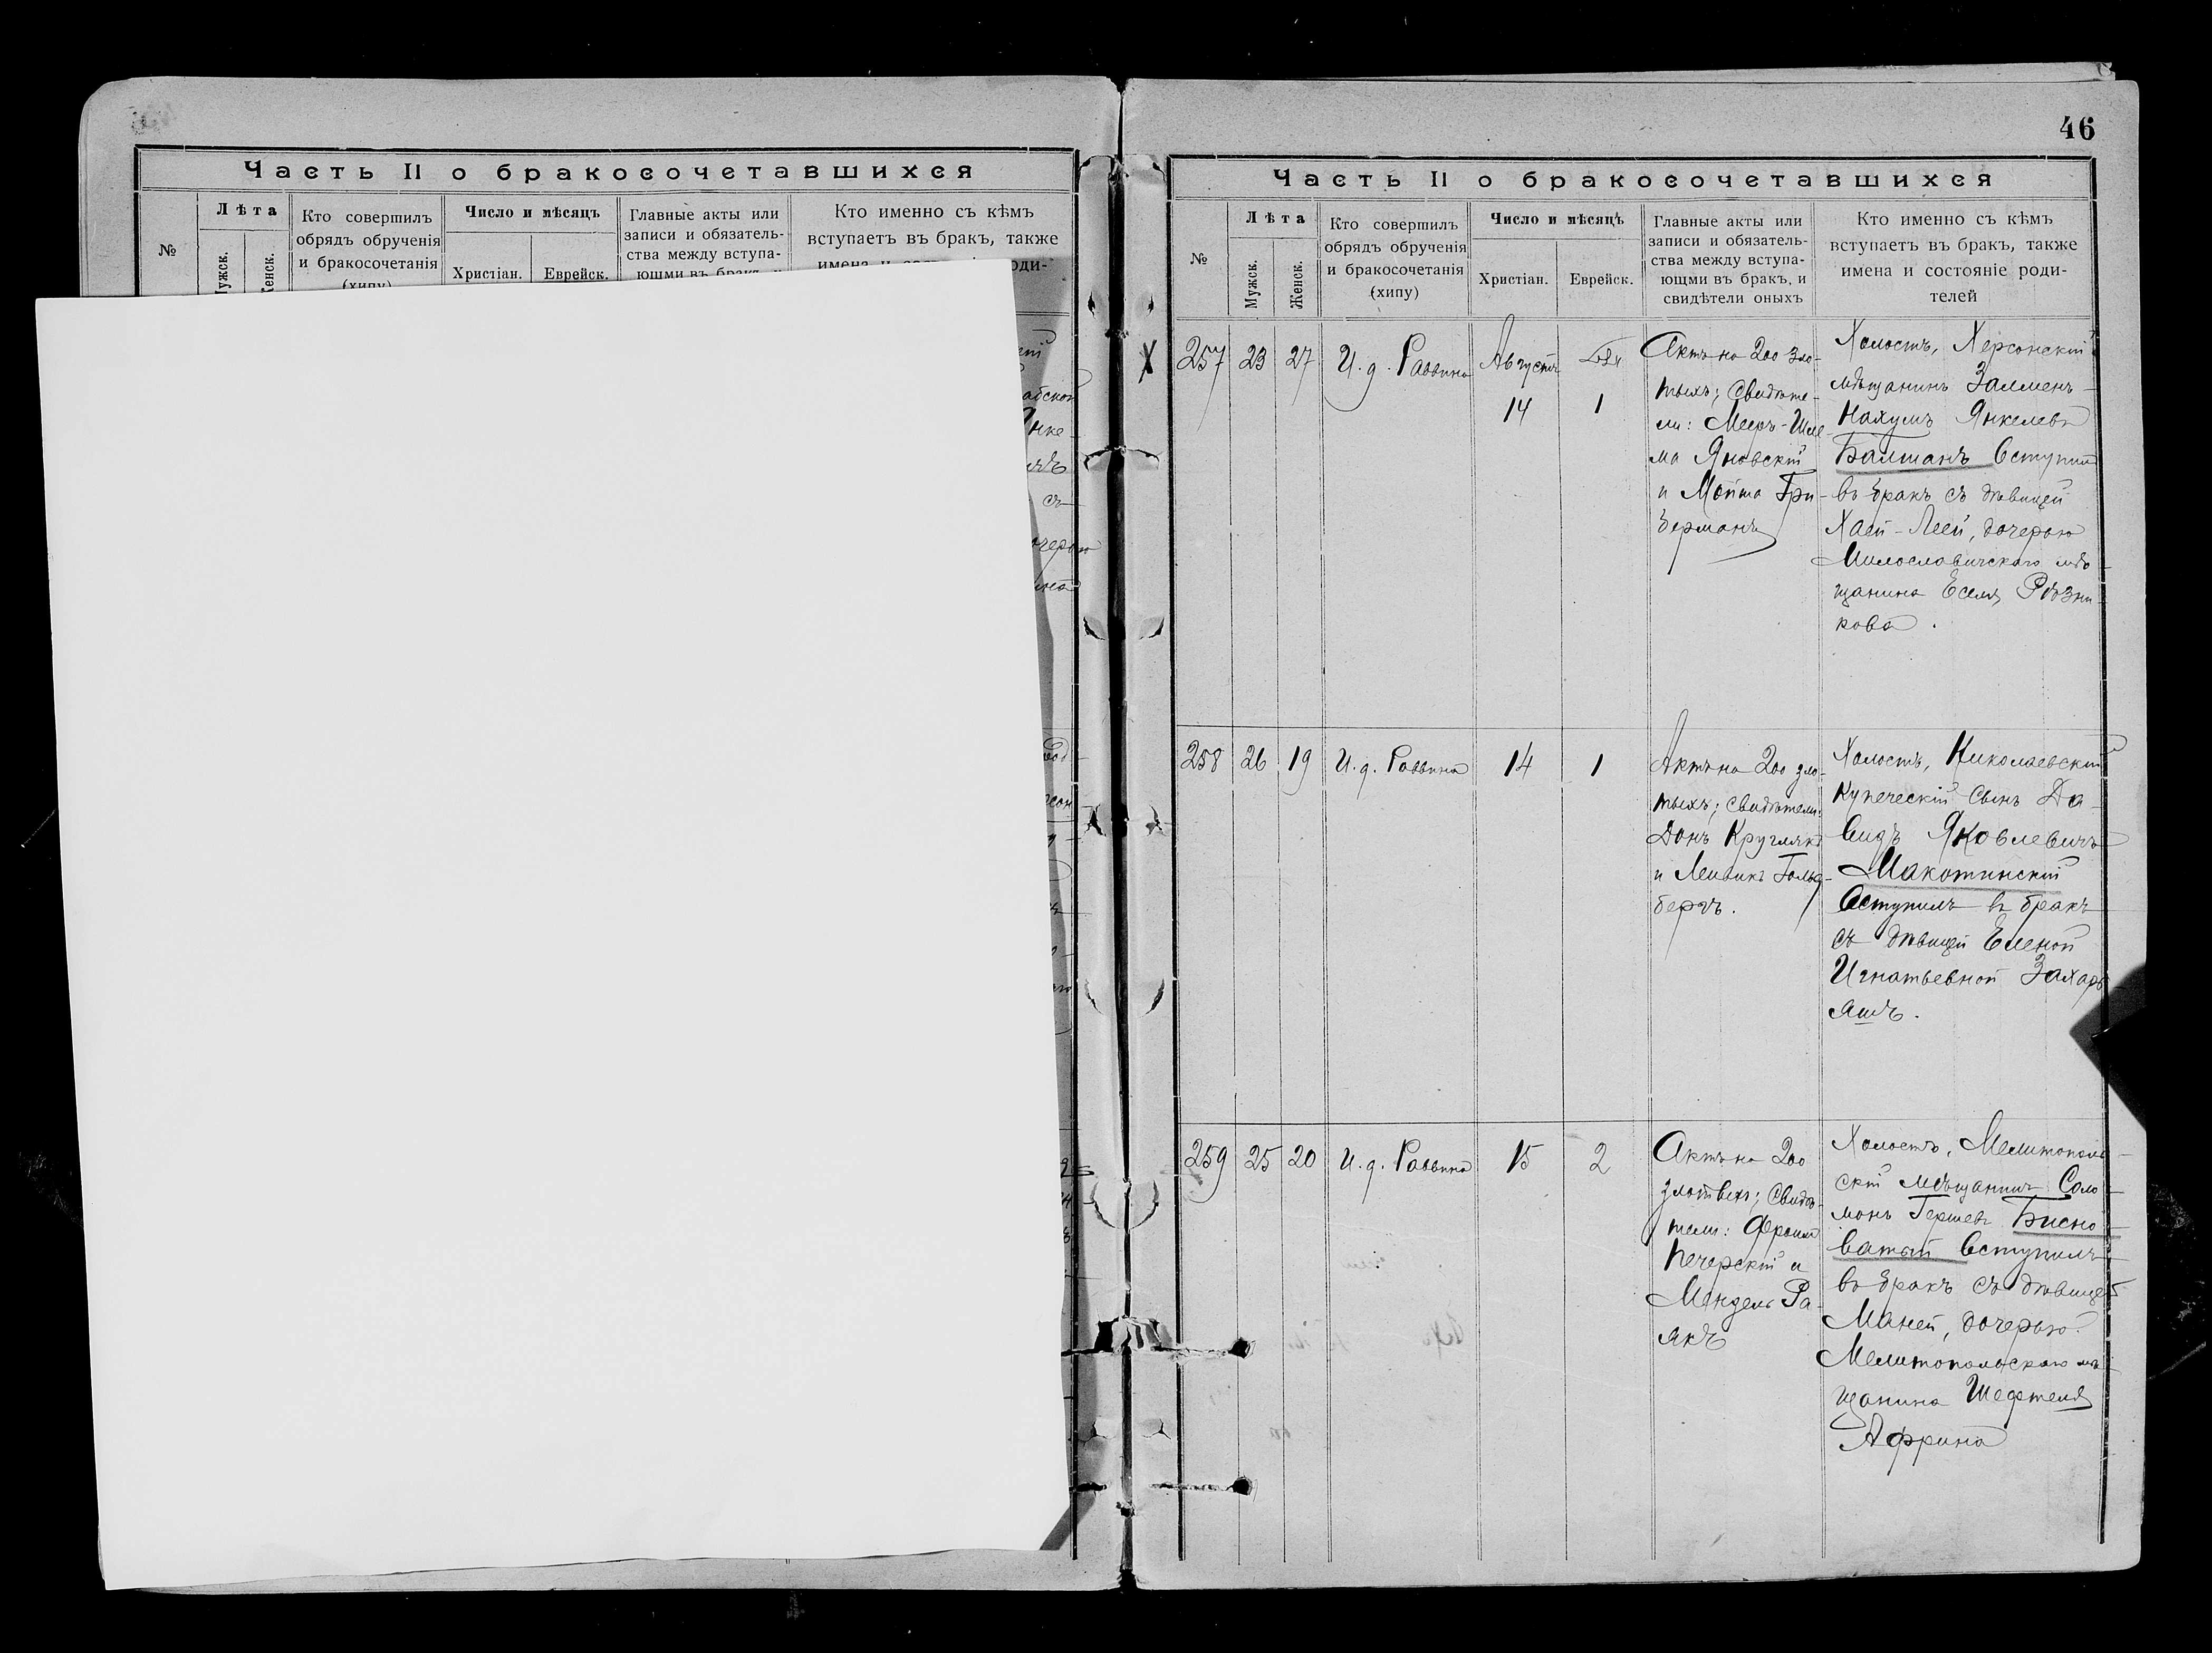 Часть II о бракосочетавшихся
№
Лѣта
Кто совершилъ
обрядъ обрученія
и бракосочетанія
Число и мѣсяцъ
Христіан.
Еврейск.
Главные акты или
записи и обязатель-
ства между вступа-
Кто именно съ кѣмъ
вступаетъ въ бракъ, также
46
Часть II о бракосочетавшихся
№
Лѣта
Мужск.
Женск.
Кто совершилъ
обрядъ обрученія
и бракосочетанія
(хипу)
Число и мѣсяцъ
Христіан.
Еврейск.
Главные акты или
записи и обязатель-
ства между вступа-
ющми въ бракъ, и
свидѣтели оныхъ
Кто именно съ кѣмъ
вступаетъ въ бракъ, также
имена и состояніе роди-
телей
257
23
27
И. д. Раввина
Августъ
14
1
Актъ на 200 зло-
тыхъ; свидѣте-
ли: Мееръ-Шле-
ма Яновскій
и Мойша Гри-
берманъ
Холостъ, Херсонскій
мѣщанинъ Залменъ-
Нахумъ Янкелевъ
Балтанъ вступилъ
въ бракъ съ дѣвицей
Хаей-Леей, дочерью
Милославичскаго мѣ-
щанина Еселя Рѣзни-
кова.
258
26
19
И. д. Раввина
14
1
Актъ на 200 зло-
тыхъ; свидѣтели:
Донъ Круглякъ
и Лейвикъ Гольд-
бергъ.
Холостъ, Николаевскій
купеческій сынъ Да-
видъ Яковлевичъ
Макотинскій
вступилъ въ бракъ
съ дѣвицей Еленой
Игнатьевной Захарь-
яшъ.
259
25
20
И. д. Раввина
15
2
Актъ на 200
злотыхъ; свидѣ-
тели: Фроимъ
Печерскій и
Мендель Ра-
якъ
Холостъ, Мелитополь-
скій мѣщанинъ Соло-
монъ Гершевъ Бисно-
ватый вступилъ
въ бракъ съ дѣвицей
Маней, дочерью
Мелитопольскаго мѣ-
щанина Шефтеля
Африна